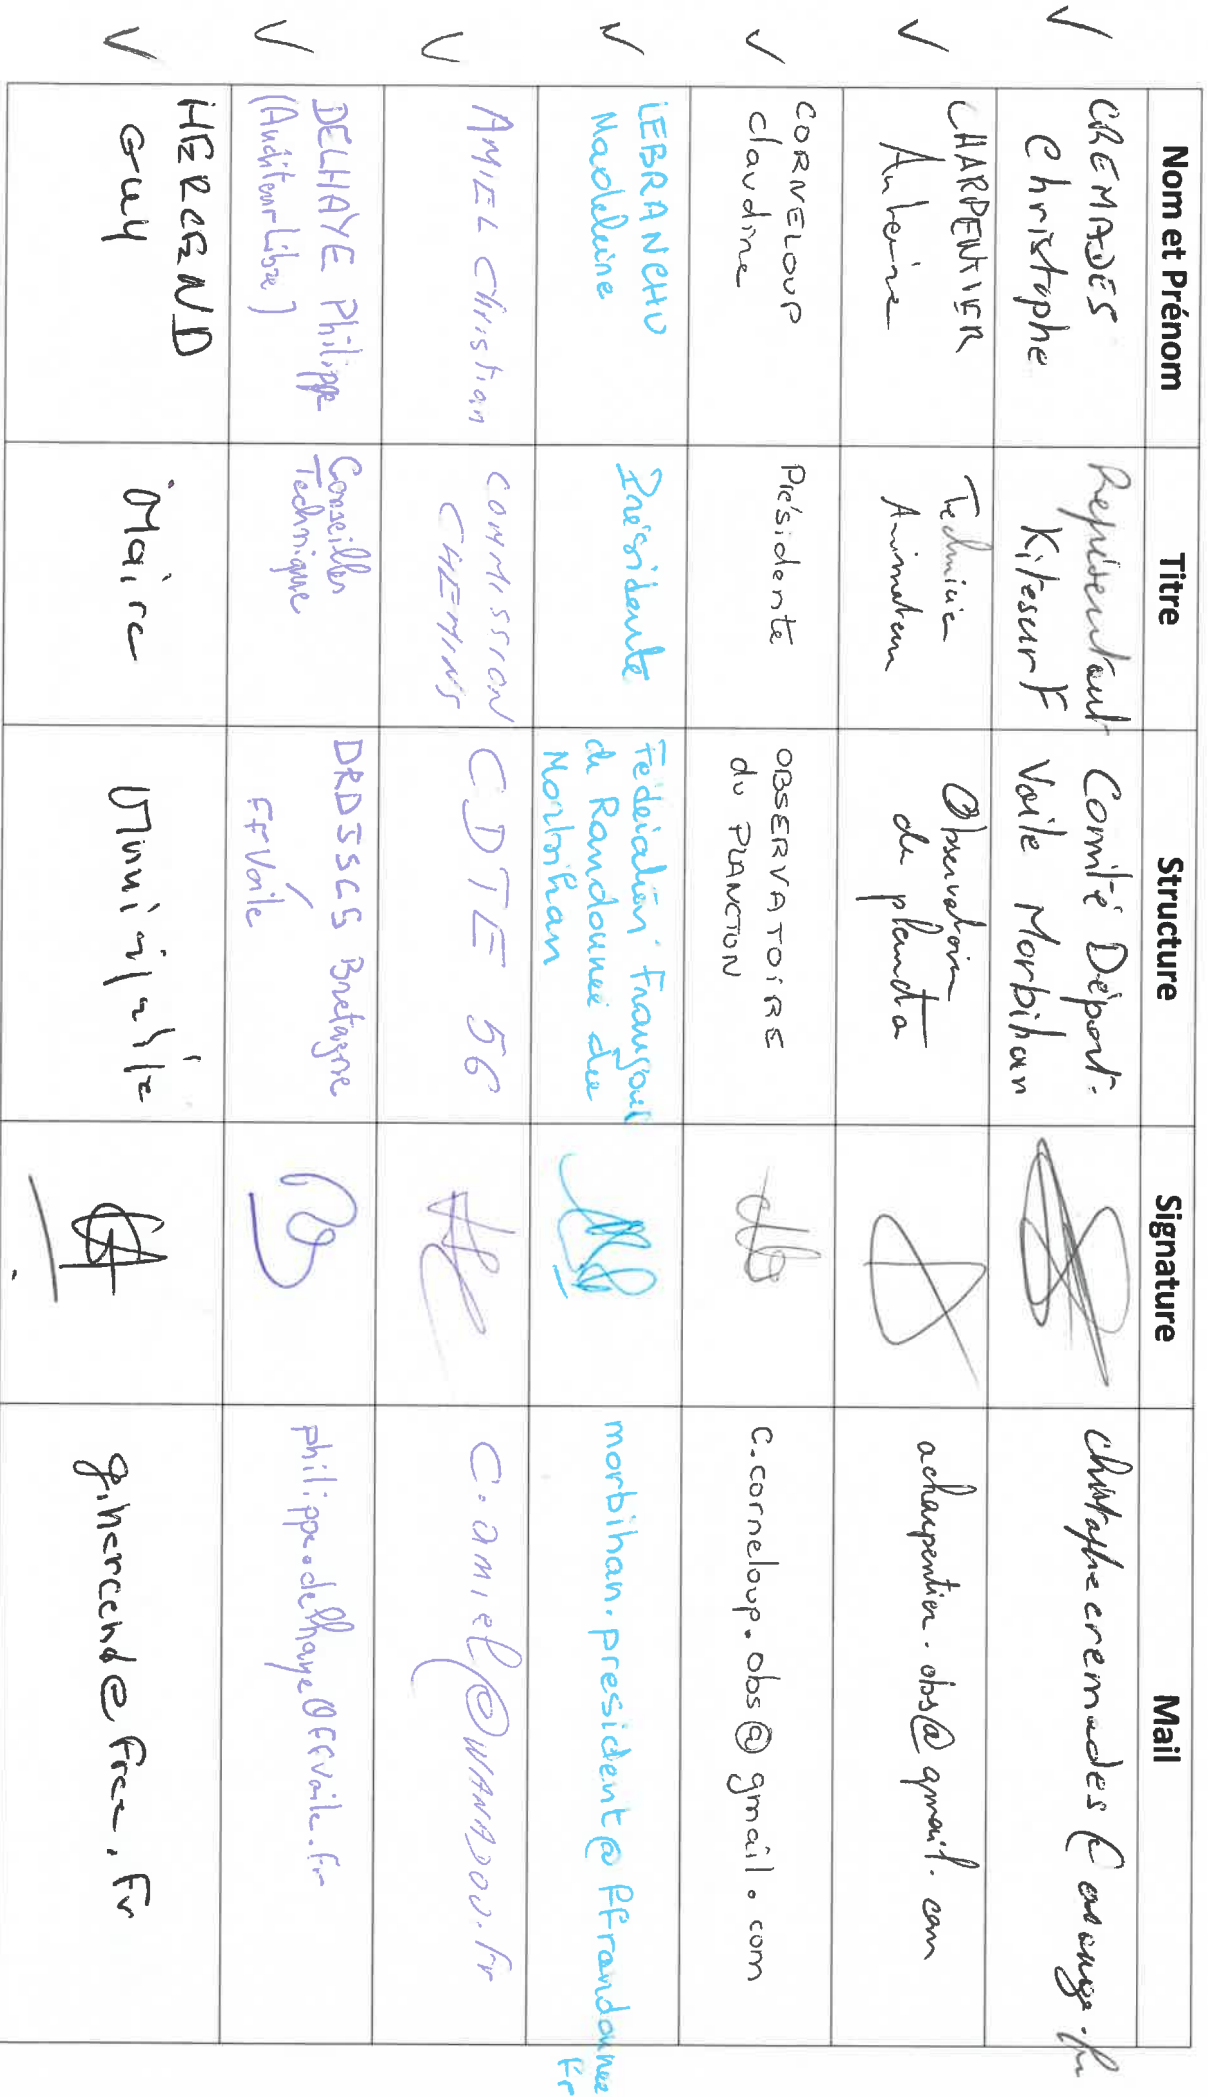 Nom et Prénom Titre Structure Signature Mail
CREMADES
Christophe
Représentant
Kitesurf
Comité Départ.
Voile Morbihan
christophecremades@orange.fr
CHARPENTIER
Technicie
Animateur
Observatoire
du plancto
acharpentier.obs@gmail.com
CORNELOUP
claudine
Présidente
OBSERVATOIRE
du PLANCTON
c.corneloup.obs@gmail.com
LEBRANCHU
Madeleine
Présidente
Fédération Française
de Randonnée du
Morbihan
morbihan.president@ffrandonnee
Fr
AMIEL Christian
COMMISSION
CHEMINS
CDTE 56
c.amiel@WANADOO.fr
DELHAYE Philippe
(Auditeur Libre)
Conseiller
Technique
DRDJSCS Bretagne
FFVoile
philippe.delhaye@ffvoile.fr
HERCEND
Guy
Maire
g.hercend@free.fr